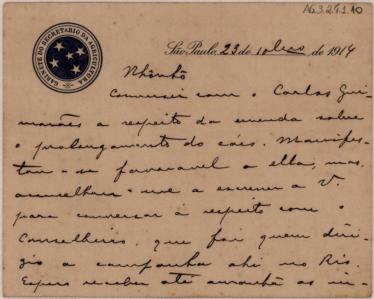 AG.3.2.9.1.10
GABINETE DO SECRETARIO DA AGRICULTURA
São Paulo, 23 de de 1914
Nhônhô
Conversei com o Carlos Gui-
marães a respeito da emenda sobre
o prolongamento do cáes. Manifes-
tou-se favoravel a ella, mas,
aconselhou-me a escrever a V.
para conversar à respeito com o
Conselheiro, que foi quem diri-
gio a campanha ahi no Rio.
Espero receber até amanhã as in-